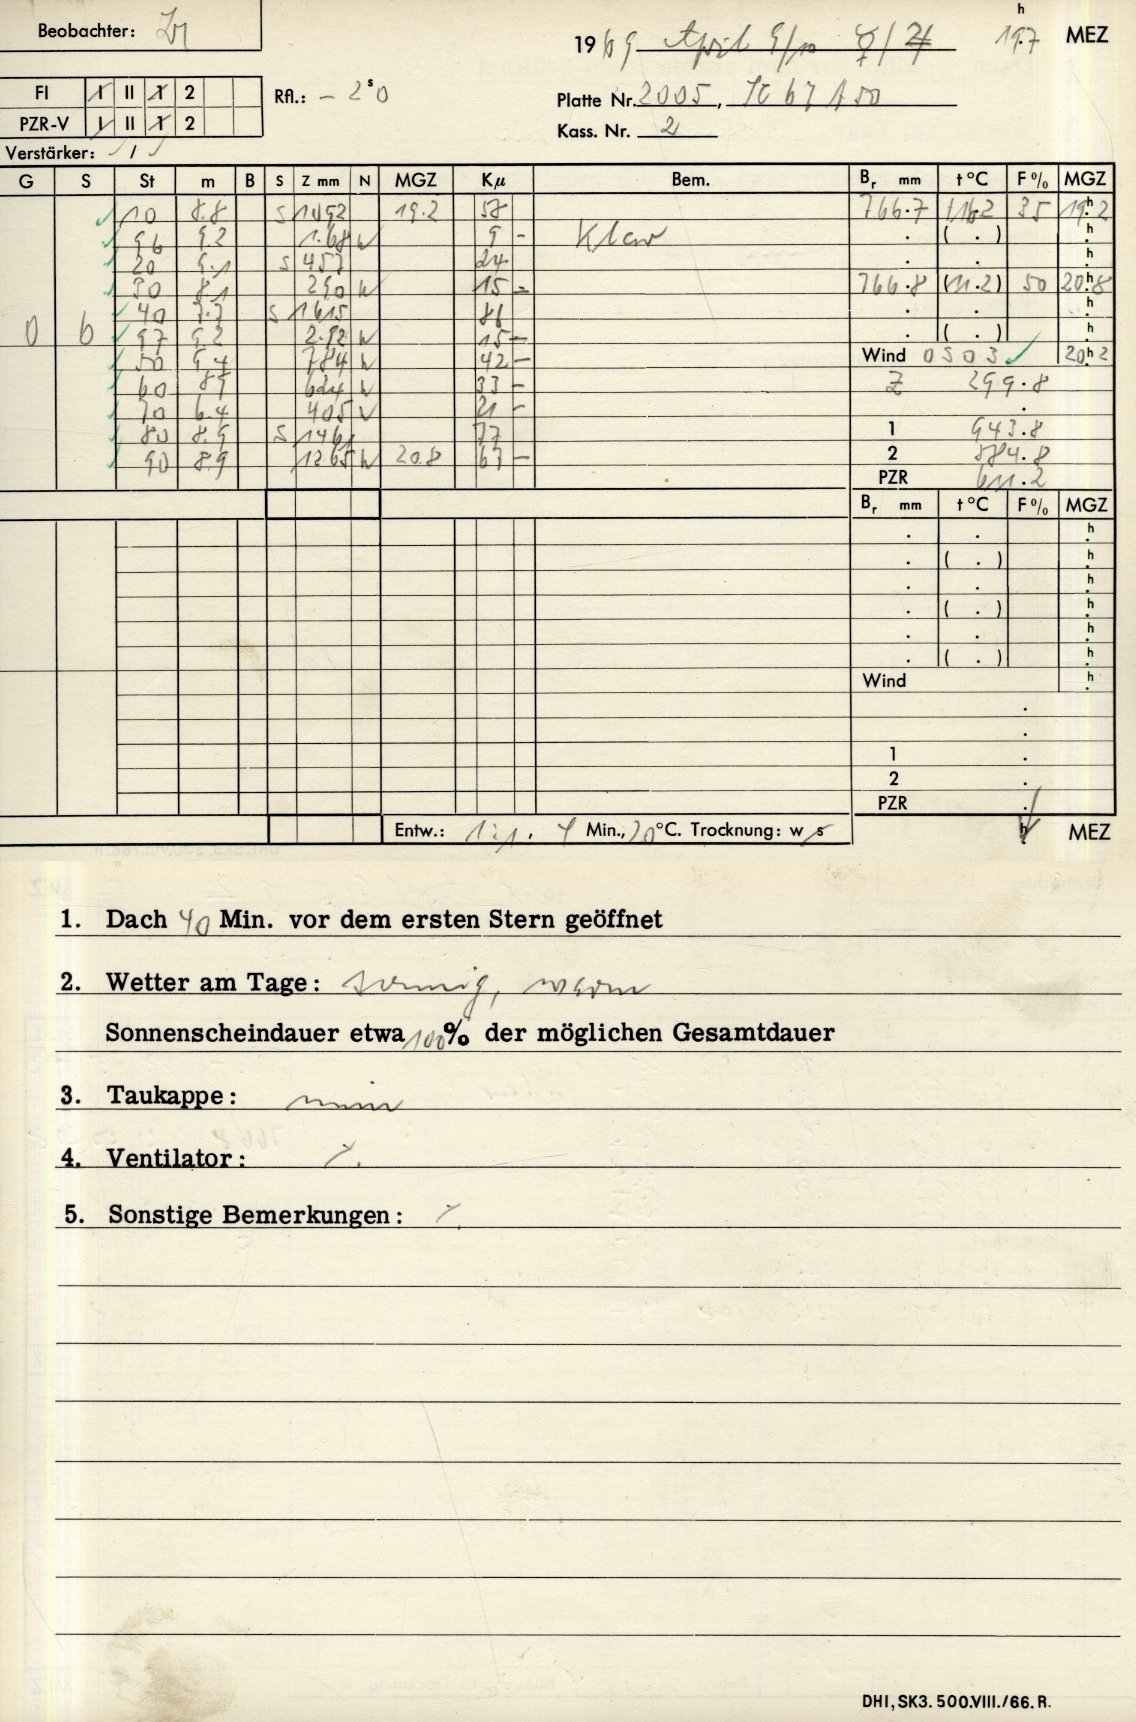 Beobachter:
1969 April 9/10 ☿/♃ 19.7 h MEZ
FI I II 1 2 Rfl.: – 2ˢ0
Platte Nr. 2005,
PZR-V I II 1 2
Kass. Nr. 2
Verstärker: /
G S St m B S Z mm N MGZ Kµ Bem. Br mm t °C F % MGZ
10 8.8 S 1092 19.2 58 766.7 35 19h2
96 9.2 1.68 W 9 – Klar ( . ) h
20 9.1 S 457 24 . . h
30 8.1 290 W 15 – 766.8 (11.2) 50 20h8
40 7.7 S 1615 86 . . h
0 6 97 9.2 2.92 W 15 – . ( . ) h
50 9.4 784 W 42 – Wind 0503 20h2
60 8.9 624 W 33 – Z 299.8
70 6.4 405 W 21 – .
80 8.9 S 1461 77 1 943.8
90 8.9 1265 W 20.8 67 – 2 584.8
PZR 611.2
Br mm t °C F % MGZ
. . h
. ( . ) h
. . h
. ( . ) h
. . h
. ( . ) h
Wind h
.
.
1 .
2 .
PZR .
Entw.: 1:1. 4 Min., 20 °C. Trocknung: w/s h MEZ
1. Dach 40 Min. vor dem ersten Stern geöffnet
2. Wetter am Tage: sonnig, warm
Sonnenscheindauer etwa 100% der möglichen Gesamtdauer
3. Taukappe: nein
4. Ventilator: ⁒
5. Sonstige Bemerkungen: ⁒
DHI, SK3. 500. VIII./66. R.